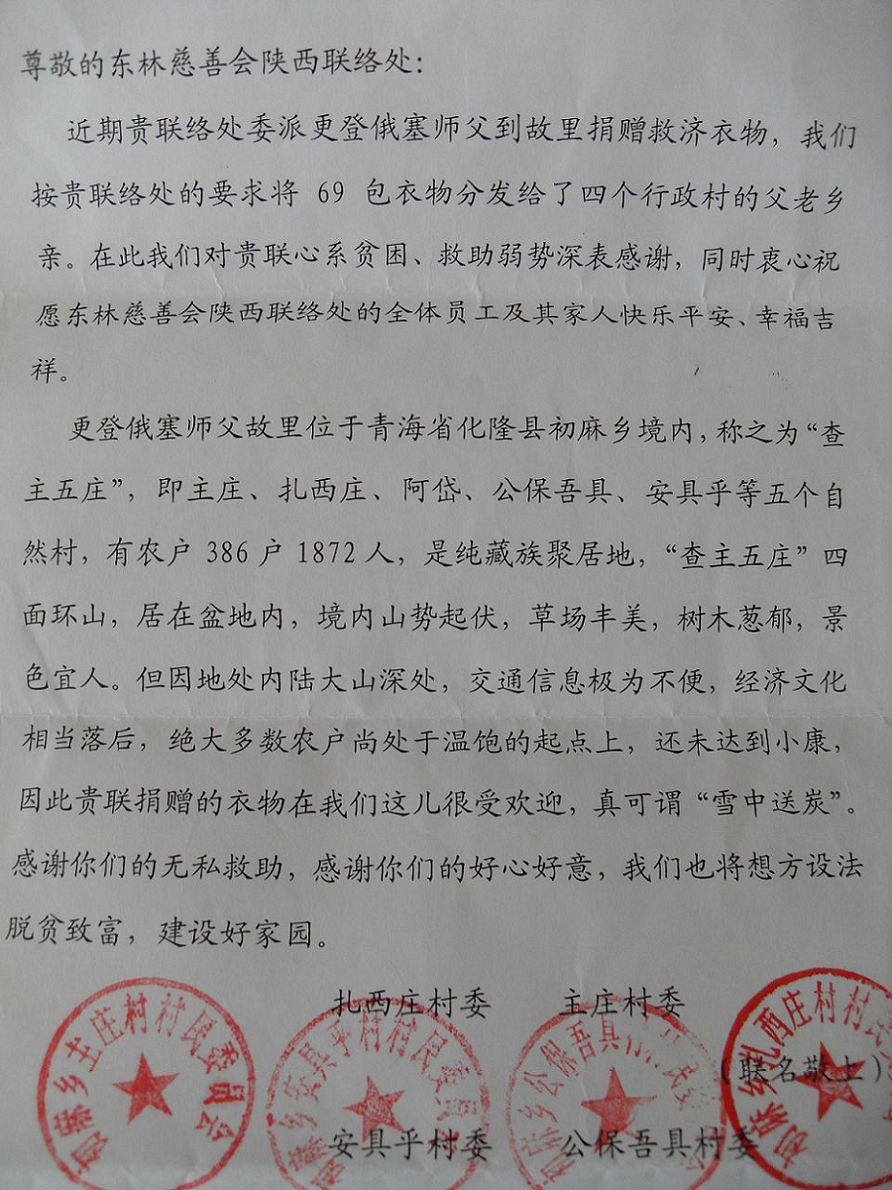 尊敬的东林慈善会陕西联络处：
近期贵联络处委派更登俄塞师父到故里捐赠救济衣物，我们
按贵联络处的要求将 69 包衣物分发给了四个行政村的父老乡
亲。在此我们对贵联心系贫困、救助弱势深表感谢，同时衷心祝
愿东林慈善会陕西联络处的全体员工及其家人快乐平安、幸福吉
祥。
更登俄塞师父故里位于青海省化隆县初麻乡境内，称之为“查
主五庄”，即主庄、扎西庄、阿岱、公保吾具、安具乎等五个自
然村，有农户 386 户 1872 人，是纯藏族聚居地，“查主五庄”四
面环山，居在盆地内，境内山势起伏，草场丰美，树木葱郁，景
色宜人。但因地处内陆大山深处，交通信息极为不便，经济文化
相当落后，绝大多数农户尚处于温饱的起点上，还未达到小康，
因此贵联捐赠的衣物在我们这儿很受欢迎，真可谓“雪中送炭”。
感谢你们的无私救助，感谢你们的好心好意，我们也将想方设法
脱贫致富，建设好家园。
扎西庄村委 主庄村委
（联名敬上）
安具乎村委 公保吾具村委
初麻乡主庄村村民委员会
初麻乡安具乎村村民委员会
初麻乡公保吾具 民委
初麻乡扎西庄村村民